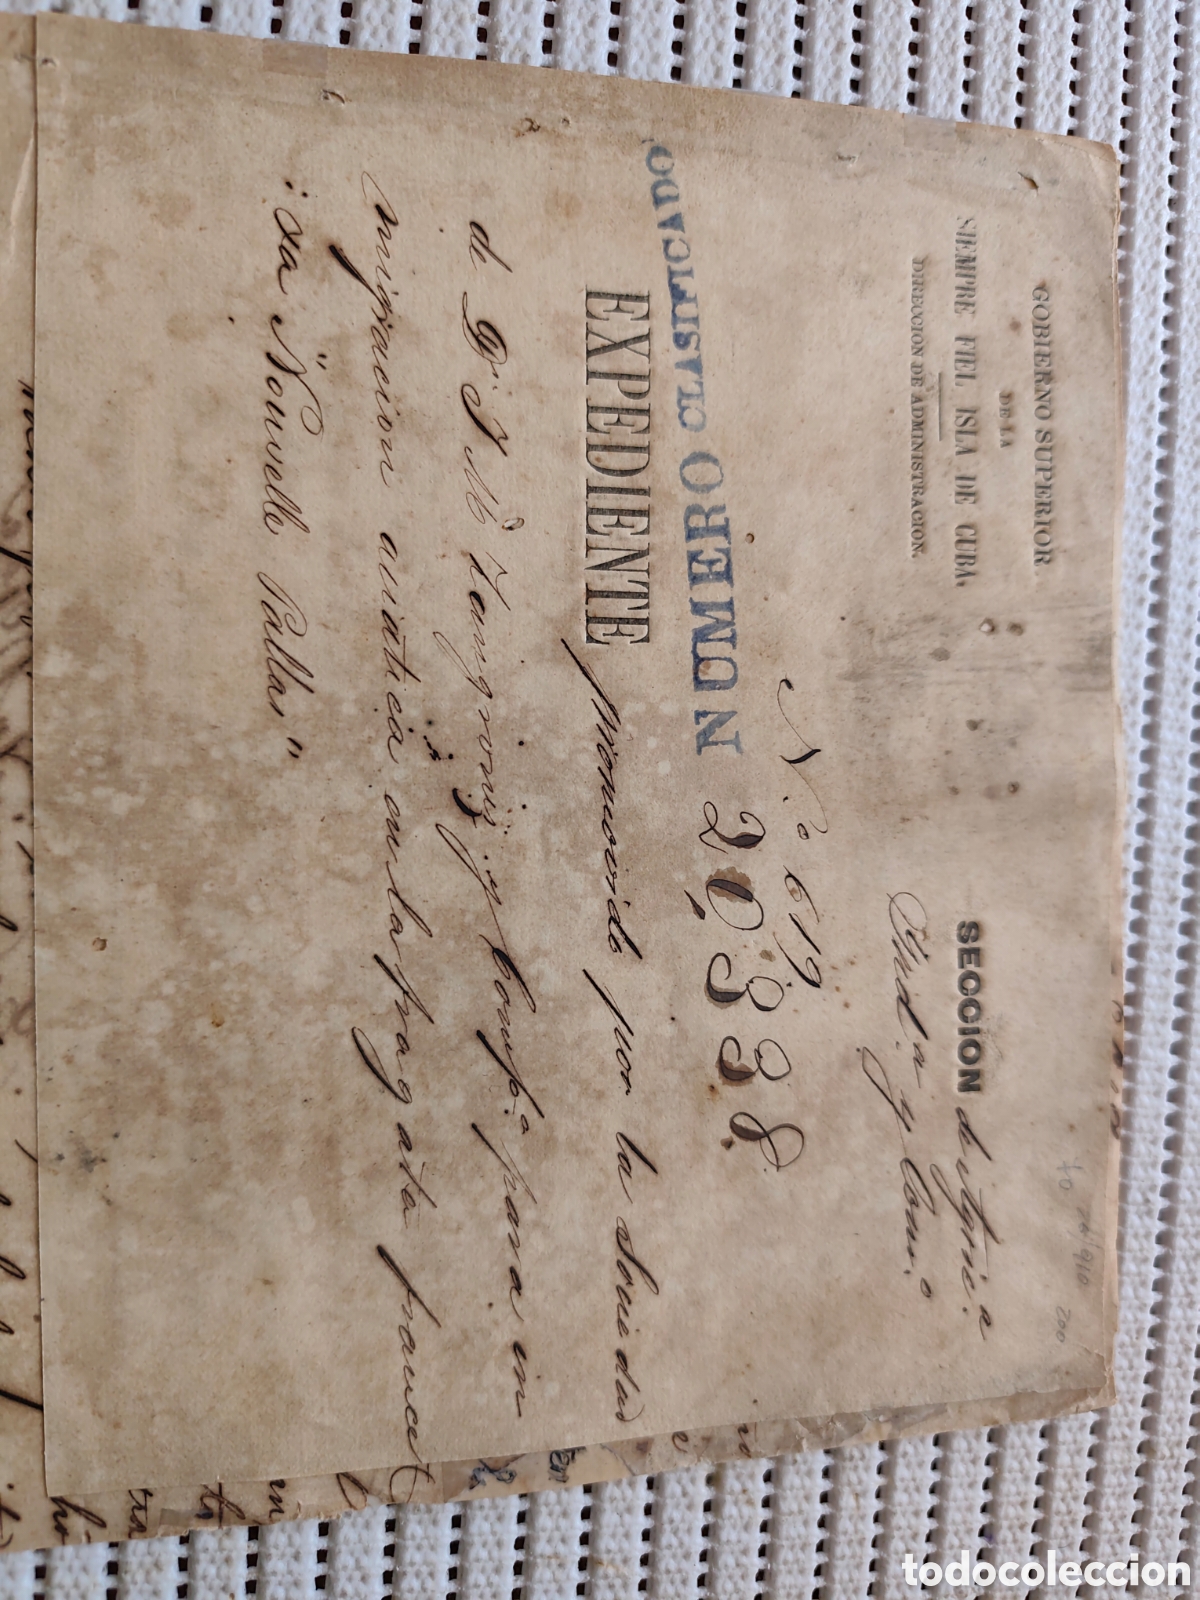 GOBIERNO SUPERIOR
DE LA
SIEMPRE FIEL ISLA DE CUBA.
DIRECCION DE ADMINISTRACION.
SECCION de Agric.a
Ynd.a y Com.o
N.o 619
NUMERO CLASIFICADO
20338
EXPEDIENTE promovido por la Sociedad
de D. J. M. Zangroniz y Comp.a para in
migracion asiatica en la fragata francesa
"La Nouvelle Pallas"
70
200
todocoleccion